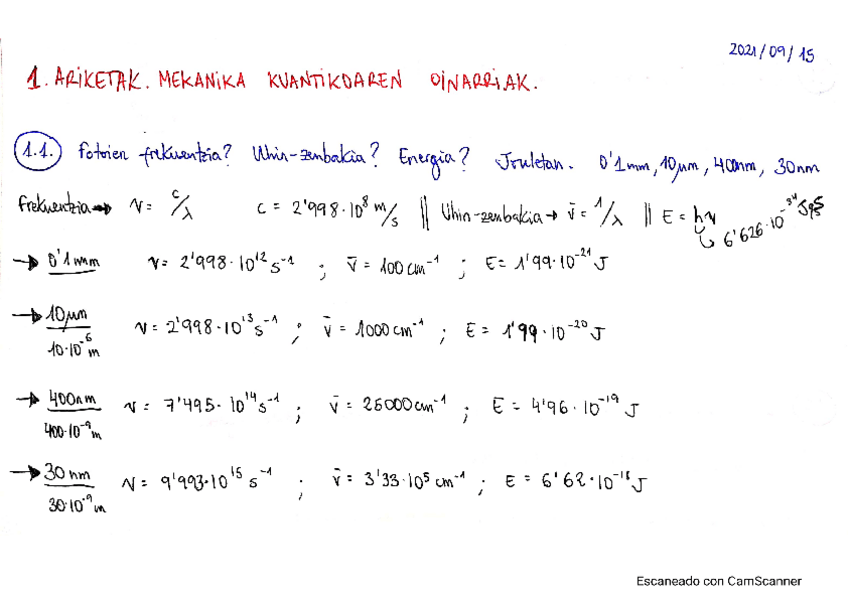 2021/09/15
1. ARIKETAK. MEKANIKA KUANTIKOAREN OINARRIAK.
1.1. Fotoien frekuentzia? Uhin-zenbakia? Energia? Jouletan. 0'1mm, 10μm, 400nm, 30nm
Frekuentzia → ν = c/λ c = 2'998·10⁸ m/s || Uhin-zenbakia → ν̄ = 1/λ || E = hν
↳ 6'626·10⁻³⁴
→ 0'1mm ν = 2'998·10¹² s⁻¹ ; ν̄ = 100 cm⁻¹ ; E = 1'99·10⁻²¹ J
→ 10μm ν = 2'998·10¹³ s⁻¹ ; ν̄ = 1000 cm⁻¹ ; E = 1'99·10⁻²⁰ J
10·10⁻⁶ m
→ 400nm ν = 7'495·10¹⁴ s⁻¹ ; ν̄ = 25000 cm⁻¹ ; E = 4'96·10⁻¹⁹ J
400·10⁻⁹ m
→ 30 nm ν = 9'993·10¹⁵ s⁻¹ ; ν̄ = 3'33·10⁵ cm⁻¹ ; E = 6'62·10⁻¹⁸ J
30·10⁻⁹ m
Escaneado con CamScanner